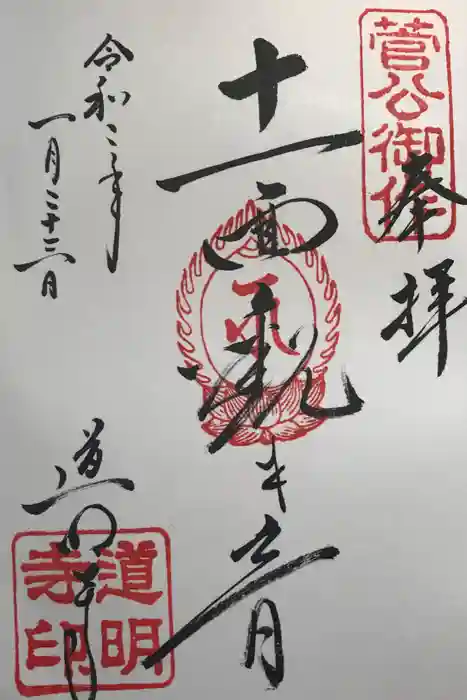 菅公御作
奉拝
十一面観世音
令和二年
一月二十二日
道明寺
道明
寺印